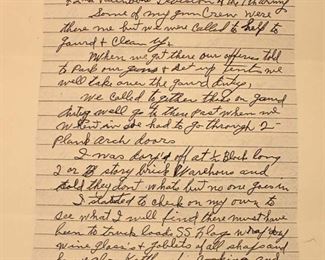 & 2nd Rainbow Division of the
Some of my gun Crew were
there me but we were called to help to
gaurd & Clean up.
When we got there our officers told
to Park our guns & set my tents we
will take over the gaurd duty.
We called together those on gaurd
duty well go to there Post when we
went in we had to go through 2-
Plank arch doors
I was dorp'd off at ½ Block long
2 or 3 story brick Warehouse and
told they dont whats but no one goes in
I started to check on my own to
see what I will find there must have
been to truck loads SS Flags
wine glass's & goblets all shaps and